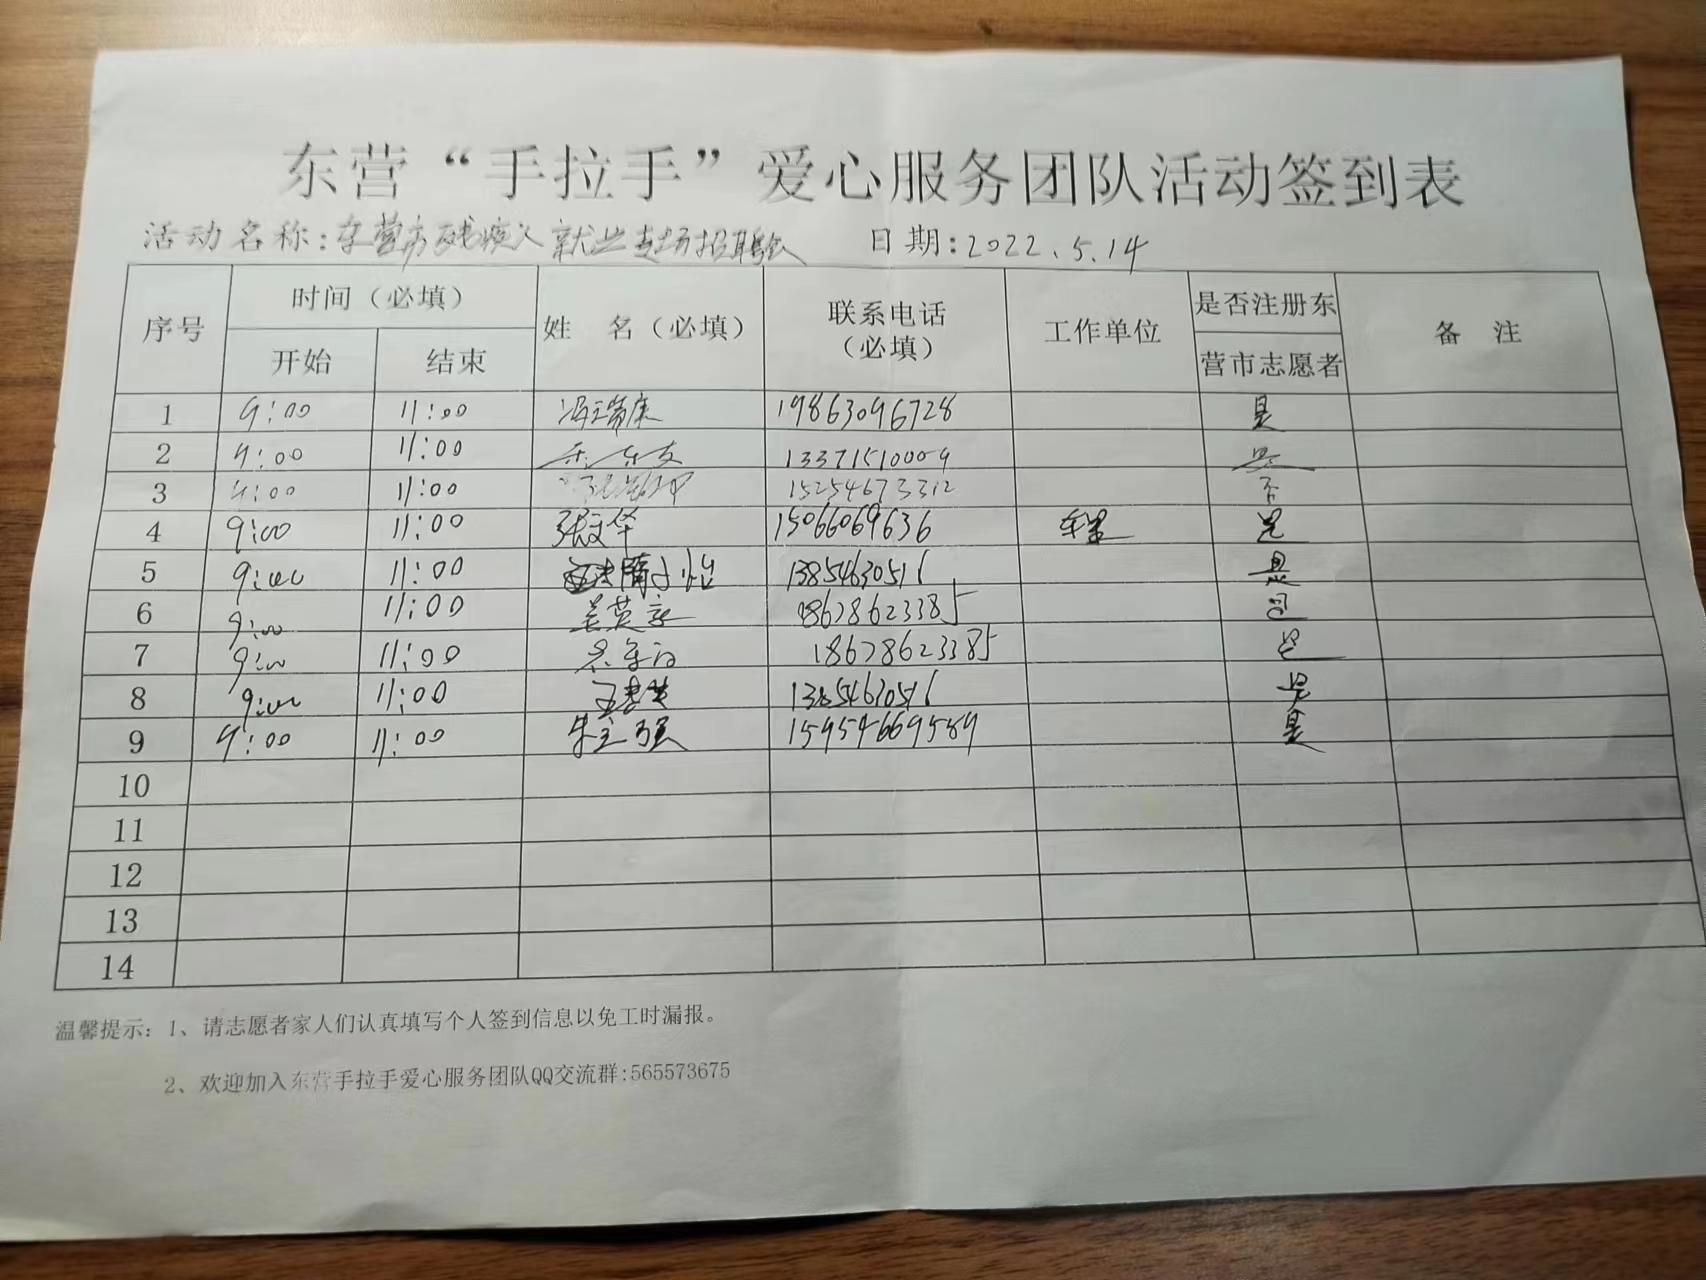 东营“手拉手”爱心服务团队活动签到表
活动名称:东营市残疾人就业专场招聘会 日期:2022.5.14
序号 时间（必填） 姓 名（必填） 联系电话（必填） 工作单位 是否注册东营市志愿者 备 注
开始 结束
1 9:00 11:00 冯瑞康 19863096728 是
2 9:00 11:00 13371510009 是
3 9:00 11:00 15254673312 否
4 9:00 11:00 张文华 15066069636 是
5 9:00 11:00 隋子怡 13854630516 是
6 9:00 11:00 18678623385 是
7 9:00 11:00 18678623385 是
8 9:00 11:00 13854630516 是
9 9:00 11:00 朱立强 15954669589 是
10
11
12
13
14
温馨提示: 1、请志愿者家人们认真填写个人签到信息以免工时漏报。
2、欢迎加入东营手拉手爱心服务团队QQ交流群:565573675